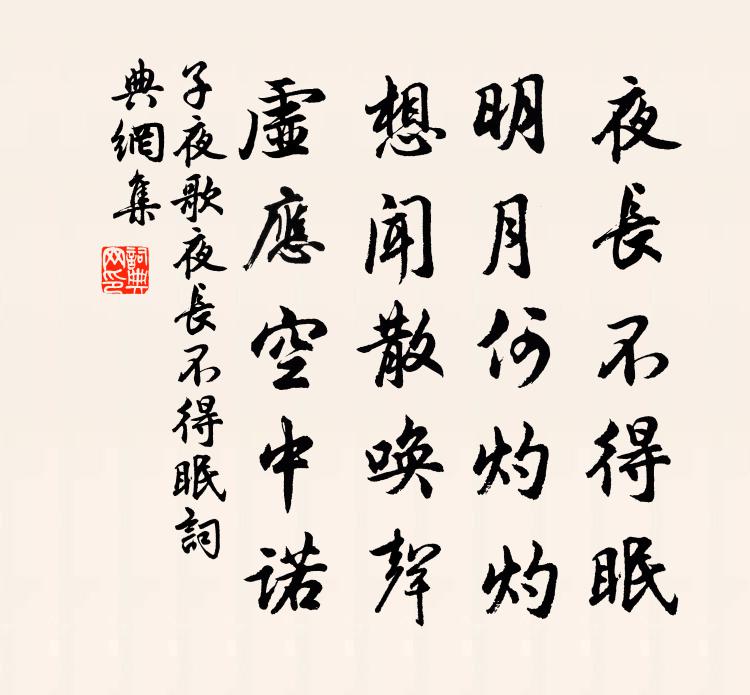 夜長不得眠
明月何灼灼
想聞散喚聲
虛應空中諾
子夜歌夜長不得眠詞
典網集
詞典
网印